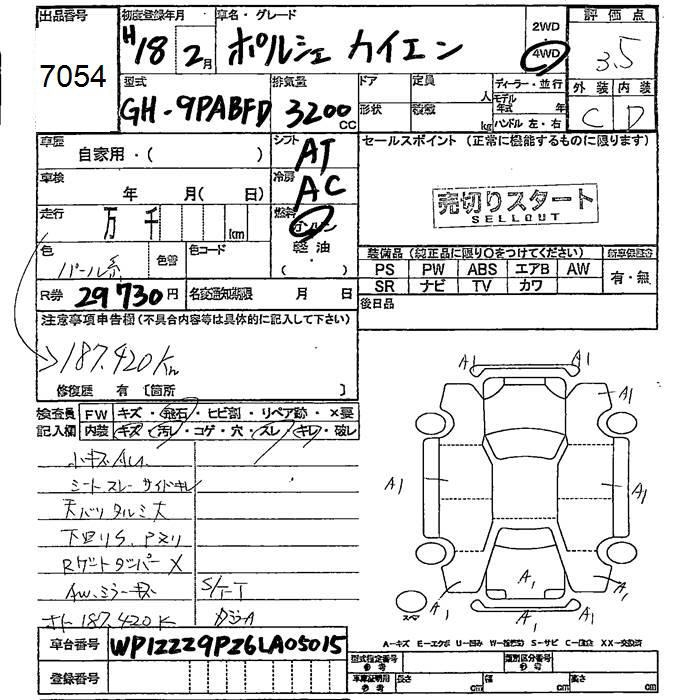 出品番号
初度登録年月
車名・グレード
評価点
7054
H18 2月
ポルシェ カイエン
2WD
4WD
3.5
型式
排気量
ドア
定員
ディーラー・並行
外装 内装
GH-9PABFD
3200
CC
人
モデル
年式 年
形状
積載
kg
ハンドル 左・右
C D
車歴
シフト
セールスポイント (正常に機能するものに限ります)
自家用・( )
AT
車検
冷房
年 月( 日)
AC
売切りスタート
SELLOUT
走行
万 千 km
燃料
ガソリン
軽油
( )
色
パール系
色替
色コード
装備品 (純正品に限り〇をつけてください)
新車保証書
PS PW ABS エアB AW
SR ナビ TV カワ
有・無
R券 29730円
名変通知期限 月 日
後日品
注意事項申告欄(不具合内容等は具体的に記入して下さい)
187.420Km
修復歴 有 [箇所 ]
検査員
記入欄
FW キズ・飛石・ヒビ割・リペア跡・×要
内装 キズ・汚レ・コゲ・穴・スレ・キレ・破レ
小キズAU
シートスレ サイドキレ
天バリタルミ大
下回りS,Pスリ
Rゲートダンパー X
AWミラーキズ
S/T-T
187.420K
A1
A1
A1
A1
A1
A1
A1
A1
A1
スペア
A-キズ E-エクボ U-凹み W-(板金波) S-サビ C-腐食 XX-交換済
車台番号 WP1ZZZ9PZ6LA05015
登録番号
型式指定番号
参考
類別区分番号
参考
車庫証明用
参考
長さ cm
幅 cm
高さ cm